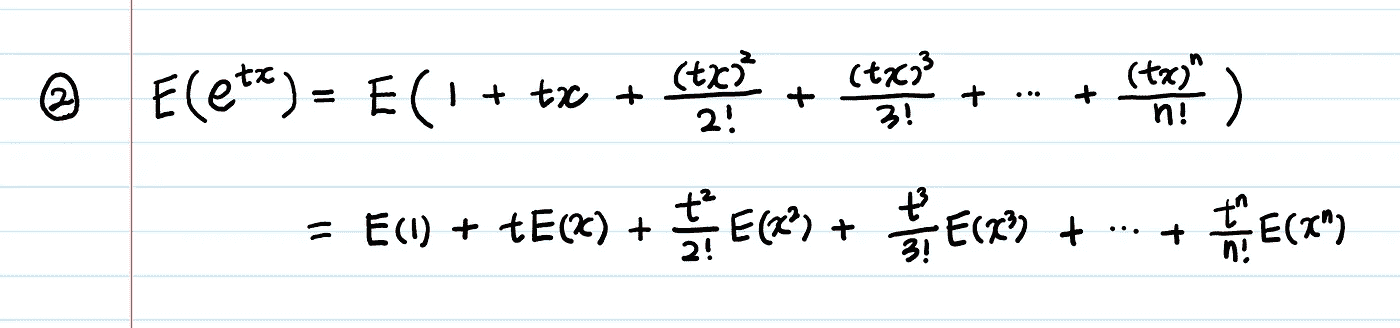 ② E(e^{tx}) = E(1 + tx + \frac{(tx)^2}{2!} + \frac{(tx)^3}{3!} + ... + \frac{(tx)^n}{n!})
= E(1) + tE(x) + \frac{t^2}{2!}E(x^2) + \frac{t^3}{3!}E(x^3) + ... + \frac{t^n}{n!}E(x^n)